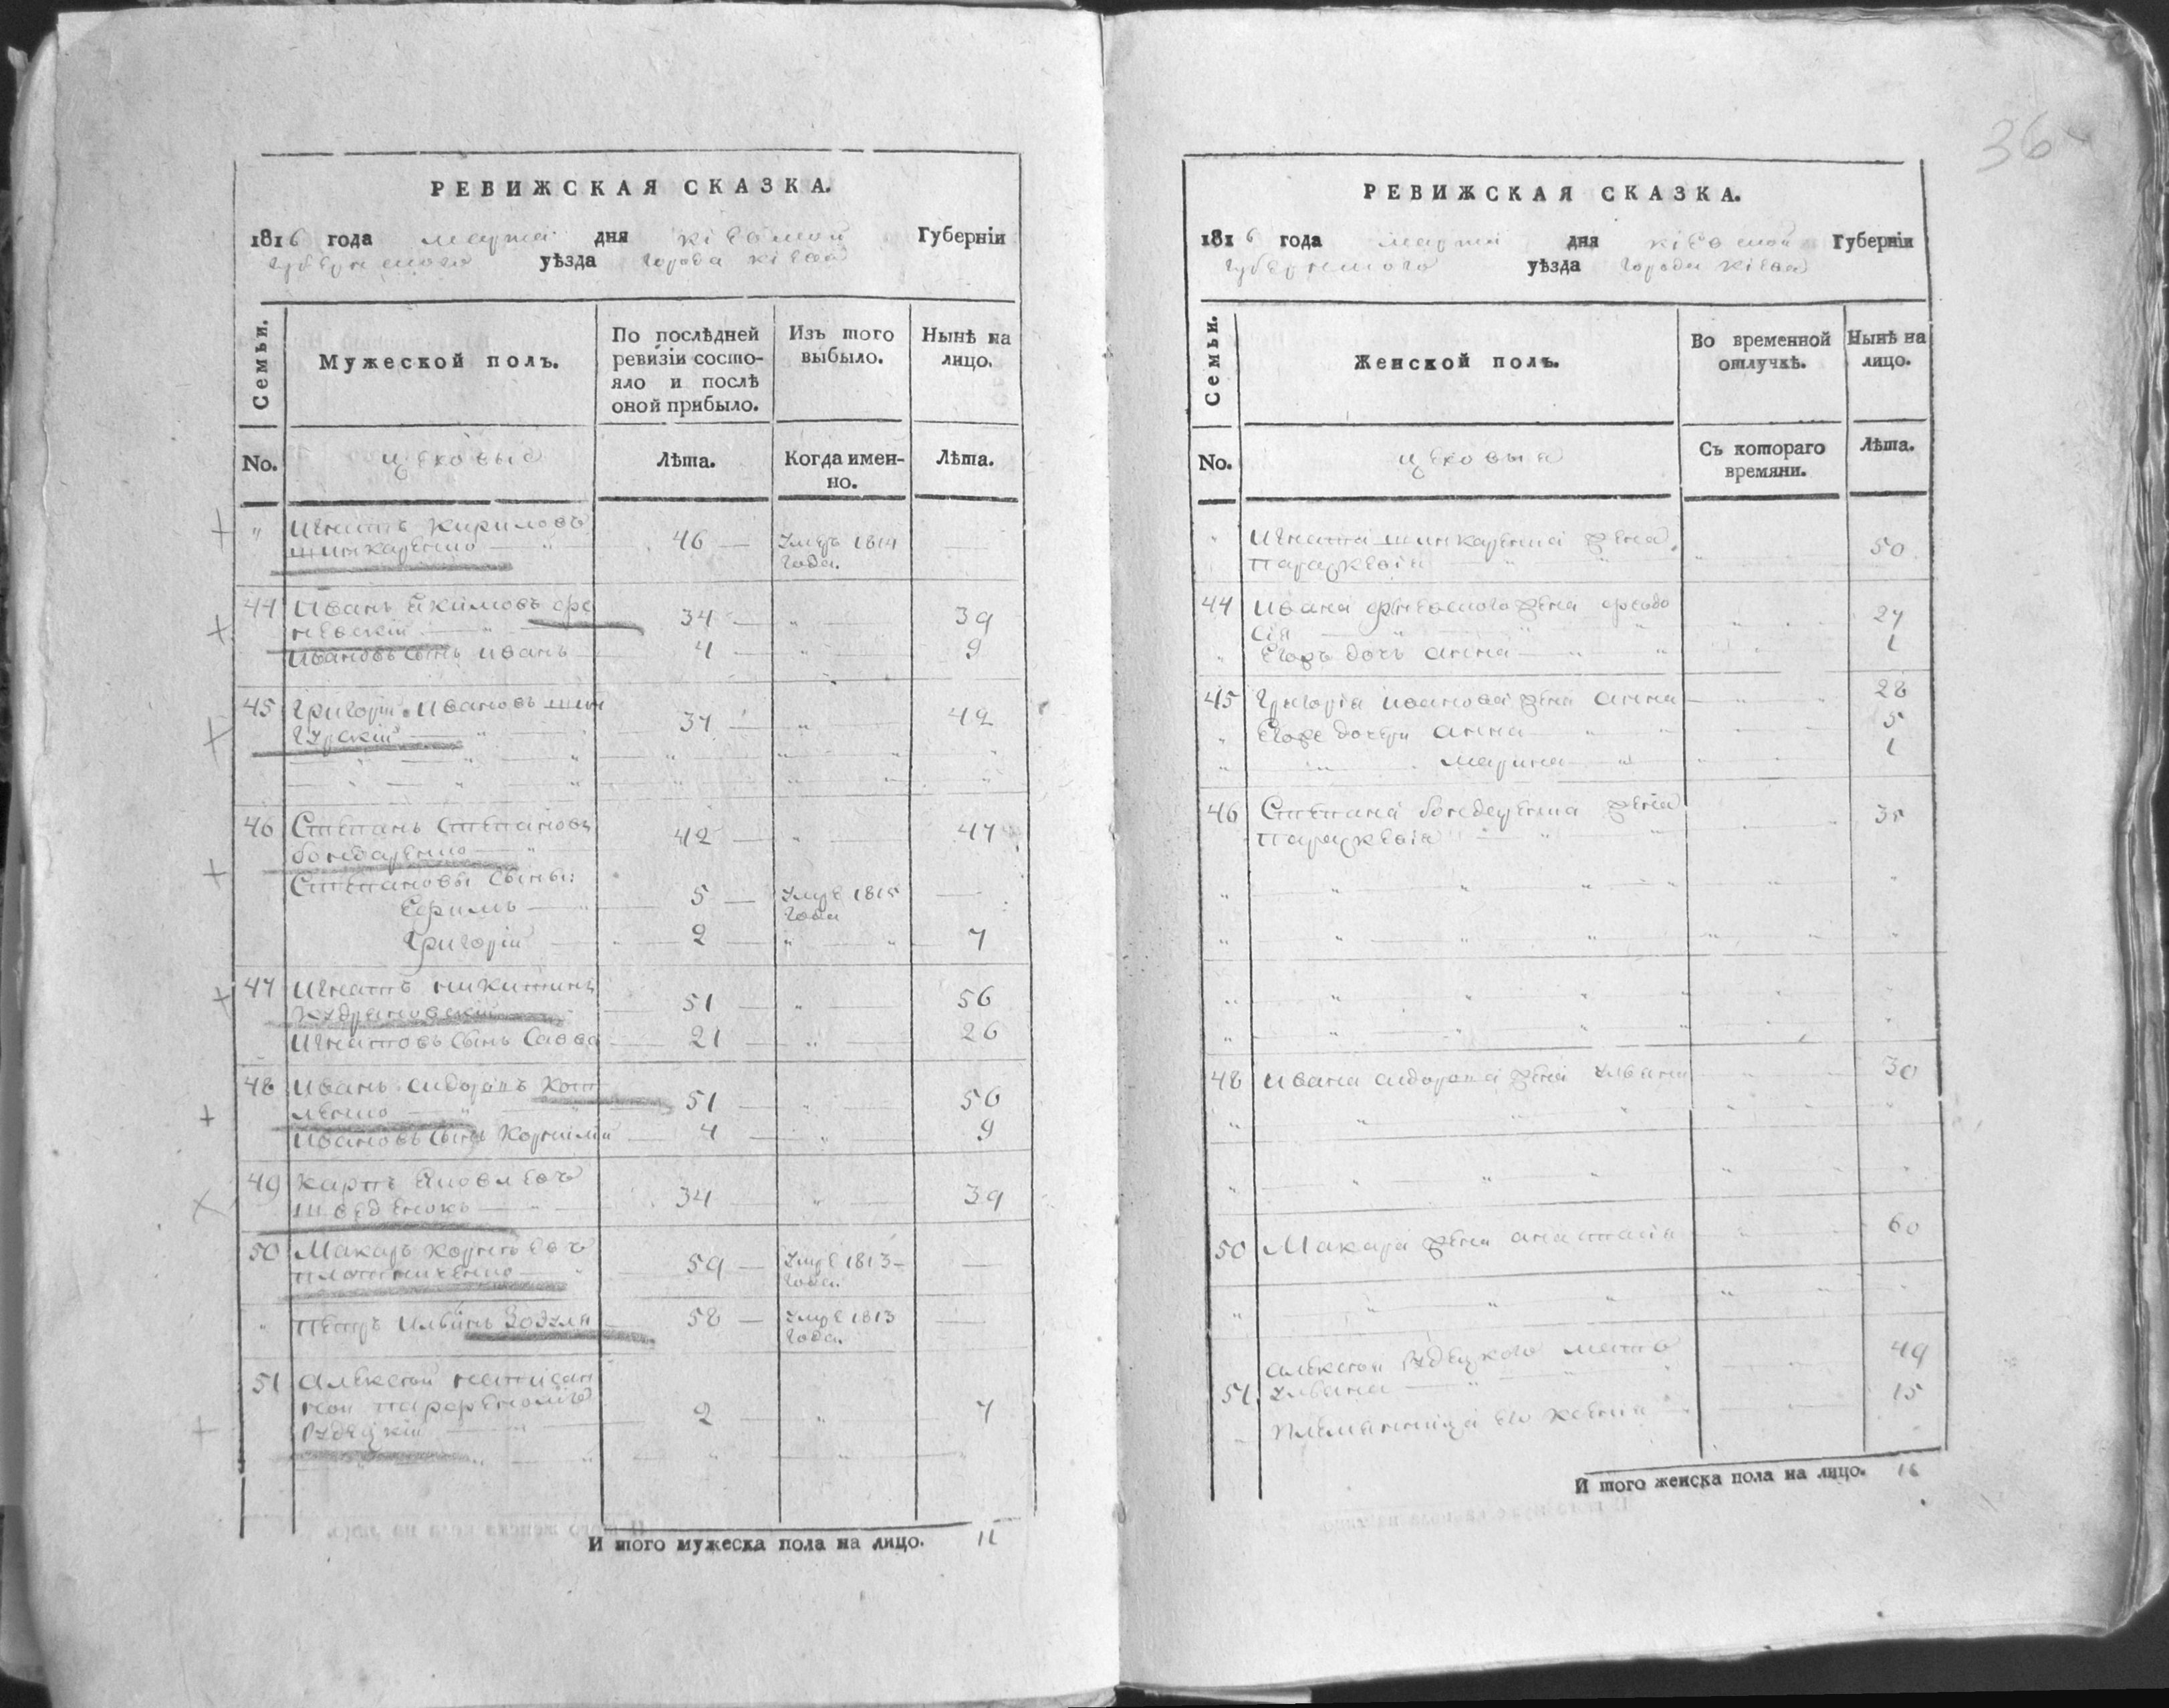 36
РЕВИЖСКАЯ СКАЗКА.
1816 года марта дня кіевской Губерніи
губернского уѣзда города кіева
Семьи.
Мужеской полъ.
По послѣдней
ревизіи состо-
яло и послѣ
оной прибыло.
Изъ того
выбыло.
Нынѣ на
лицо.
No.
цеховые
Лѣта.
Когда имен-
но.
Лѣта.
" Игнатъ Кириловъ
шинкаренко 46 умре 1814
года.
44 Иванъ Якимовъ
34 39
Ивановъ сынъ иванъ 4 9
45 Григорій Ивановъ
37 42
46 Степанъ Степановъ
бондаренко 42 47
Степановы сыны:
Ефимъ 5 умре 1815
года
Григорій 2 7
47 Игнатъ никитинъ
51 56
Игнатовъ сынъ Савва 21 26
48 Иванъ сидоровъ
ленко 51 56
Ивановъ сынъ Корнилій 4 9
49 Карпъ Яковлевъ
шведенокъ 34 39
50 Макаръ корнѣевъ
плотниченко 59 умре 1813
года.
" Петръ Ильинъ 58 умре 1813
года.
51 Алексей неписан
ной парфеновъ
Рудецкій 2 7
И того мужеска пола на лицо. 11
РЕВИЖСКАЯ СКАЗКА.
1816 года марта дня кіевской Губерніи
губернского уѣзда города кіева
Семьи.
Женской полъ.
Во временной
отлучкѣ.
Нынѣ на
лицо.
No.
цеховыя
Съ котораго
времяни.
Лѣта.
" Игната шинкаренка жена
параскевія 50
44 Ивана жена феодо
сія 27
" Егожъ дочь анна 1
45 Григорія иванова жена анна 28
" Егоже дочери анна 5
" марина 1
46 Степана бондаренка жена
параскевія 35
48 Ивана сидорова жена ульяна 30
50 Макара жена анастасія 60
алексея Рудецкого мать
51 ульяна 49
племянница его ксенія 15
И того женска пола на лицо.